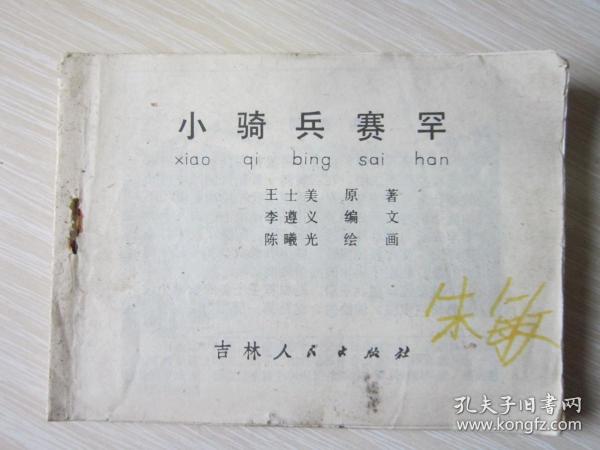 小骑兵赛罕
xiao qi bing sai han
王士美 原著
李遵义 编文
陈曦光 绘画
朱敏
吉林人民出版社
孔夫子旧书网
www.kongfz.com